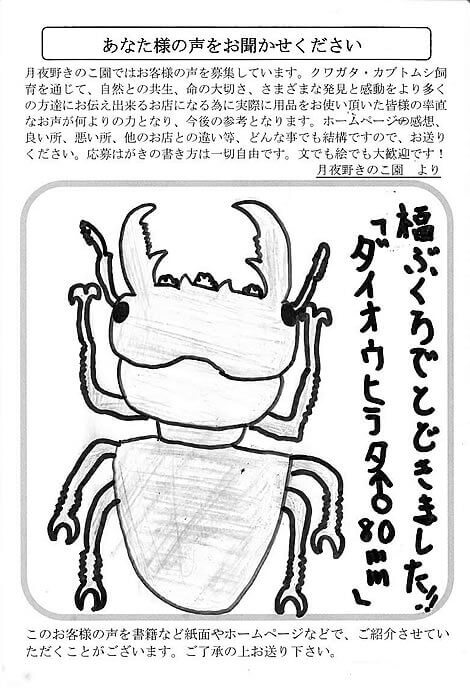 あなた様の声をお聞かせください
月夜野きのこ園ではお客様の声を募集しています。クワガタ・カブトムシ飼
育を通じて、自然との共生、命の大切さ、さまざまな発見と感動をより多く
の方達にお伝え出来るお店になる為に実際に用品をお使い頂いた皆様の率直
なお声が何よりの力となり、今後の参考となります。ホームページの感想、
良い所、悪い所、他のお店との違い等、どんな事でも結構ですので、お送り
ください。応募はがきの書き方は一切自由です。文でも絵でも大歓迎です！
月夜野きのこ園　より
福ぶくろでとどきました!!
「ダイオウヒラタ♂80mm」
このお客様の声を書籍など紙面やホームページなどで、ご紹介させてい
ただくことがございます。ご了承の上お送り下さい。